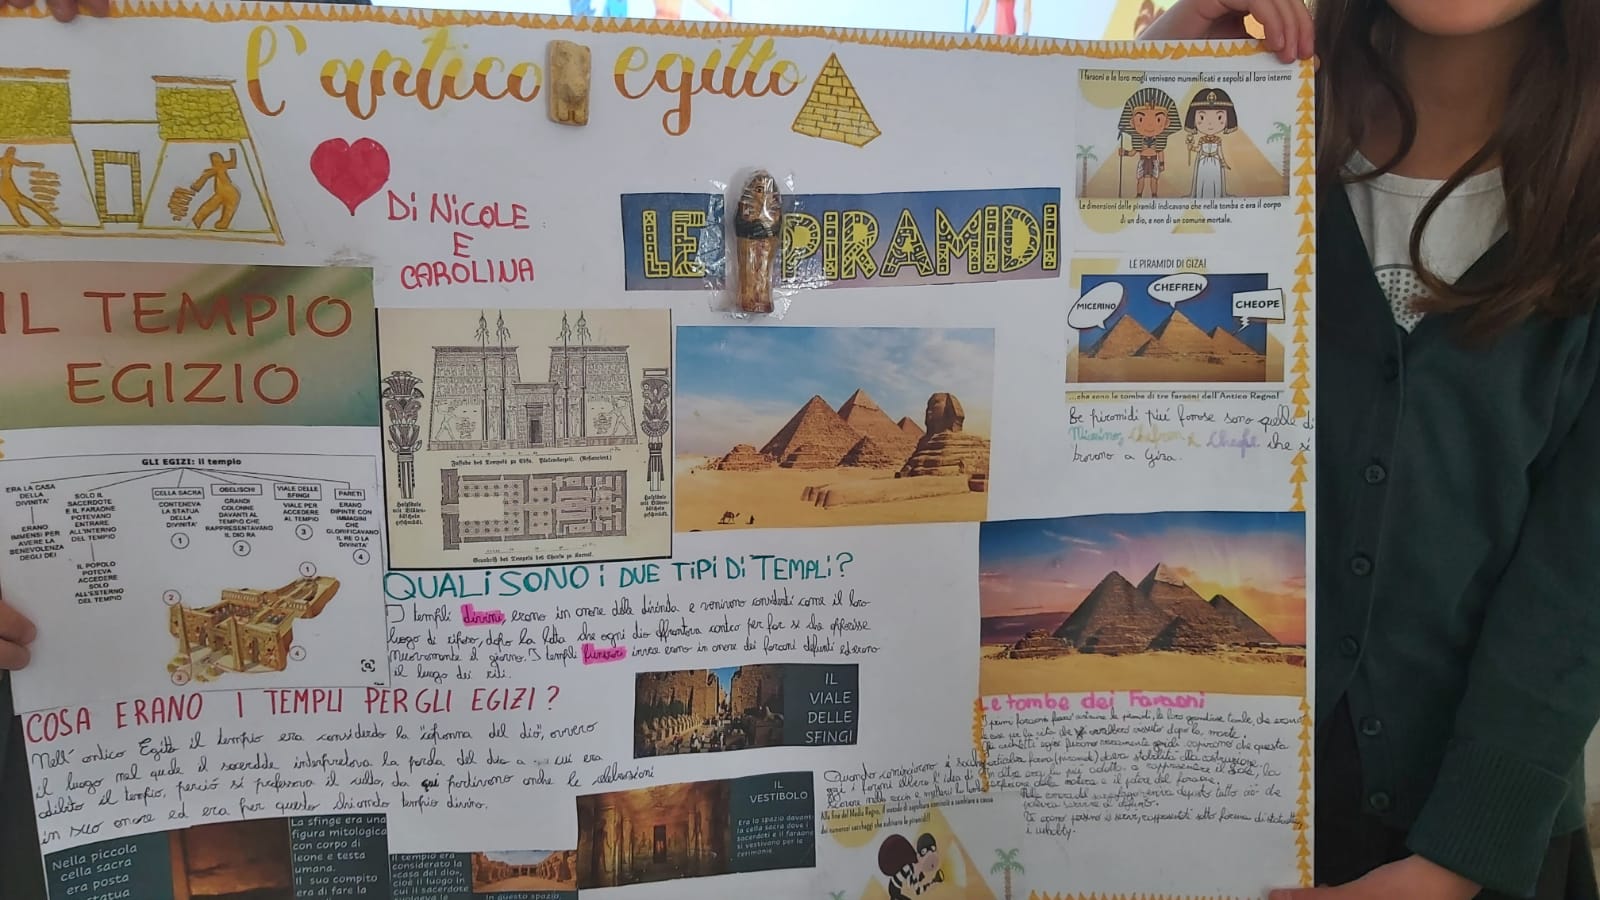 l'antico egitto
DI NICOLE
E
CAROLINA
LE PIRAMIDI
I faraoni e le loro mogli venivano mummificati e sepolti al loro interno
Le dimensioni delle piramidi indicavano che nella tomba c'era il corpo
di un dio, e non di un comune mortale.
LE PIRAMIDI DI GIZA!
MICERINO
CHEFREN
CHEOPE
...che sono le tombe di tre faraoni dell'Antico Regno!
Le piramidi piú famose sono quelle di
Micerino, Chefren e Cheope che si
trovano a Giza.
IL TEMPIO
EGIZIO
GLI EGIZI: il tempio
ERA LA CASA
DELLA
DIVINITA'
ERANO
IMMENSI PER
AVERE LA
BENEVOLENZA
DEGLI DEI
SOLO IL
SACERDOTE
E IL FARAONE
POTEVANO
ENTRARE
ALL'INTERNO
DEL TEMPIO
IL POPOLO
POTEVA
ACCEDERE
SOLO
ALL'ESTERNO
DEL TEMPIO
CELLA SACRA
CONTENEVA
LA STATUA
DELLA
DIVINITA'
1
OBELISCHI
GRANDI
COLONNE
DAVANTI AL
TEMPIO CHE
RAPPRESENTAVANO
IL DIO RA
2
VIALE DELLE
SFINGI
VIALE PER
ACCEDERE
AL TEMPIO
3
PARETI
ERANO
DIPINTE CON
IMMAGINI
CHE
GLORIFICAVANO
IL RE O LA
DIVINITA'
4
1
2
3
4
Fassade des Tempels zu Edfu. Ptolemäerzeit. (Restauriert.)
Grundriß des Tempels des Chunsu zu Karnak.
QUALI SONO I DUE TIPI DI TEMPLI?
I templi divini, erano in onore della divinità e venivano considerati come il loro
luogo di riposo, dopo la lotta che ogni dio affrontava contro per far sì che
nuovamente il giorno. I templi funerari invece erano in onore dei faraoni defunti ed erano
il luogo dei riti.
COSA ERANO I TEMPLI PER GLI EGIZI?
Nell' antico Egitto il tempio era considerato la "capanna del dio", ovvero
il luogo nel quale il sacerdote interpretava la parola del dio a cui era
adibito il tempio, perciò si professava il culto, da qui partivano anche le celebrazioni
in suo onore ed era per questo chiamato tempio divino.
IL
VIALE
DELLE
SFINGI
IL
VESTIBOLO
Era lo spazio davanti
la cella sacra dove i
sacerdoti e il faraone
si vestivano per le
cerimonie
Nella piccola
cella sacra
era posta
La sfinge era una
figura mitologica
con corpo di
leone e testa
umana.
Il suo compito
era di fare la
Il tempio era
considerato la
«casa del dio»,
cioè il luogo in
cui il sacerdote
In questo spazio
Le tombe dei Faraoni
I primi faraoni piramidi, le loro grandiose tombe, che erano
case per la vita che avrebbero vissuto dopo la morte.
Gli architetti egizi furono capivano che questa
forma (piramide) dava stabilità alla costruzione.
In oltre era la più adatta a rappresentare il Sole, la
della natura e il potere del faraone.
Nella camera del veniva deposto tutto ciò che
poteva servire al defunto.
Vi erano persino i servi, rappresentati sotto forma di statuette,
i ushabty.
Quando cominciarono i
i faraoni ebbero l'idea di
scavare nella roccia
Alla fine del Medio Regno, il metodo di sepoltura cominciò a cambiare a causa
dei numerosi saccheggi che subivano le piramidi!!